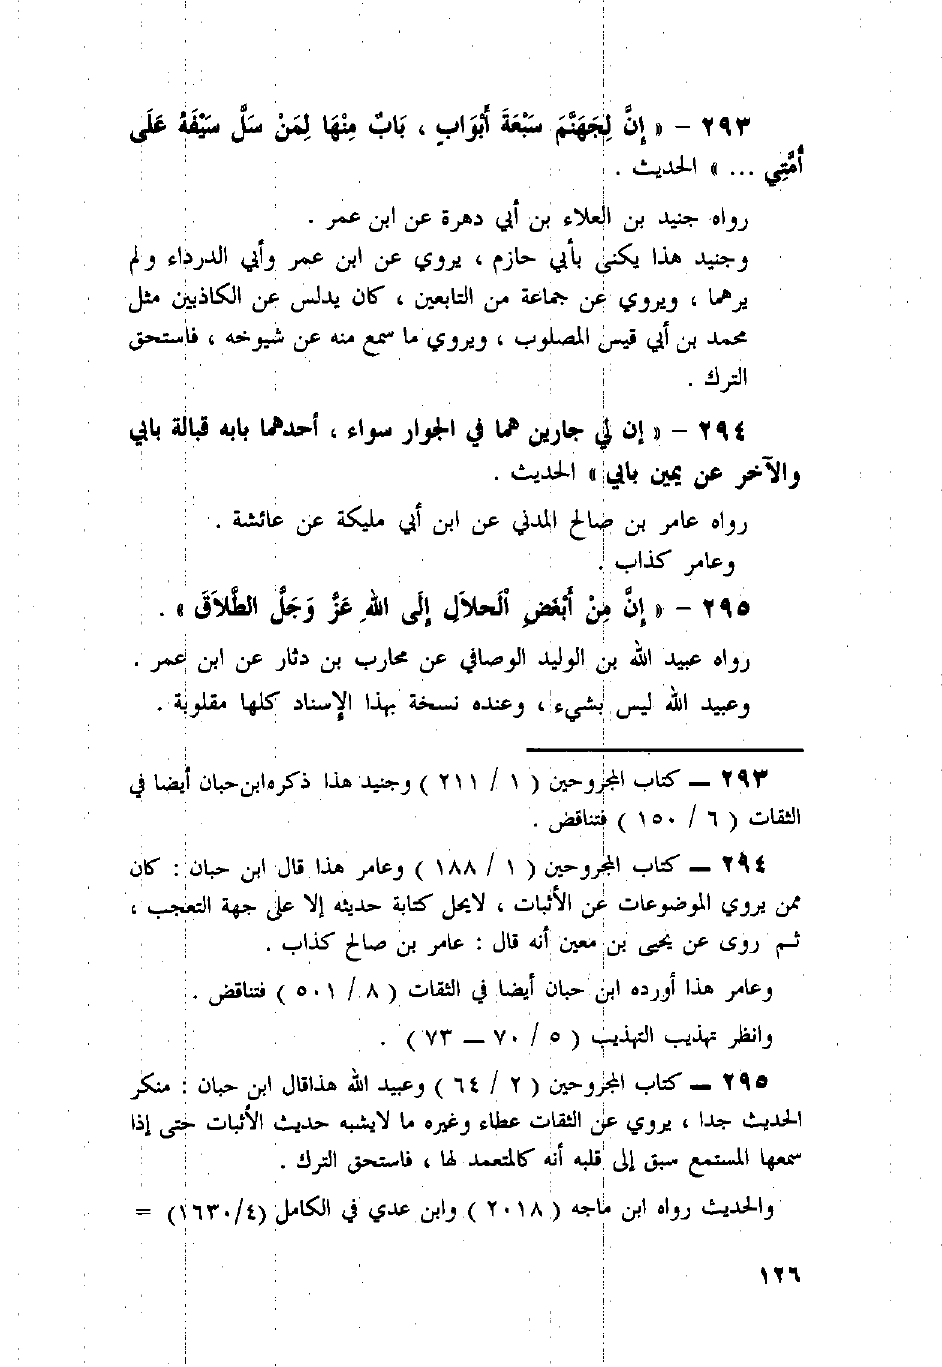 ٢٩٣ – « إِنَّ لِجَهَنَّمَ سَبْعَةَ أَبْوَابٍ ، بَابٌ مِنْهَا لِمَنْ سَلَّ سَيْفَهُ عَلَى
أُمَّتِي ... » الحديث .
رواه جنيد بن العلاء بن أبي دهرة عن ابن عمر .
وجنيد هذا يكنى بأبي حازم ، يروي عن ابن عمر وأبي الدرداء ولم
يرهما ، ويروي عن جماعة من التابعين ، كان يدلس عن الكاذبين مثل
محمد بن أبي قيس المصلوب ، ويروي ما سمع منه عن شيوخه ، فاستحق
الترك .
٢٩٤ – « إن لي جارين هما في الجوار سواء ، أحدهما بابه قبالة بابي
والآخر عن يمين بابي » الحديث .
رواه عامر بن صالح المدني عن ابن أبي مليكة عن عائشة .
وعامر كذاب .
٢٩٥ – « إِنَّ مِنْ أَبْغَضِ اْلَحلاَلِ إِلَى اللهِ عَزَّ وَجَلَّ الطَّلاَقَ » .
رواه عبيد الله بن الوليد الوصافي عن محارب بن دثار عن ابن عمر .
وعبيد الله ليس بشيء ، وعنده نسخة بهذا الإسناد كلها مقلوبة .
٢٩٣ — كتاب المجروحين ( ١ / ٢١١ ) وجنيد هذا ذكره ابن حبان أيضا في
الثقات ( ٦ / ١٥٠ ) فتناقض .
٢٩٤ — كتاب المجروحين ( ١ / ١٨٨ ) وعامر هذا قال ابن حبان : كان
ممن يروي الموضوعات عن الأثبات ، لايحل كتابة حديثه إلا على جهة التعجب ،
ثم روى عن يحيى بن معين أنه قال : عامر بن صالح كذاب .
وعامر هذا أورده ابن حبان أيضا في الثقات ( ٨ / ٥٠١ ) فتناقض .
وانظر تهذيب التهذيب ( ٥ / ٧٠ — ٧٣ ) .
٢٩٥ — كتاب المجروحين ( ٢ / ٦٤ ) وعبيد الله هذاقال ابن حبان : منكر
الحديث جدا ، يروي عن الثقات عطاء وغيره ما لايشبه حديث الأثبات حتى إذا
سمعها المستمع سبق إلى قلبه أنه كالمتعمد لها ، فاستحق الترك .
والحديث رواه ابن ماجه ( ٢٠١٨ ) وابن عدي في الكامل (٤/١٦٣٠) =
١٢٦